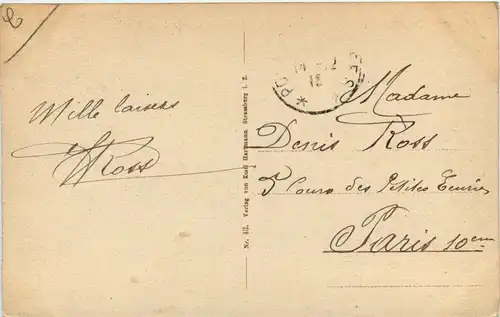 Mille baisers
Ross
Nr. 412. Verlag von Emil Hartmann Strassburg i. E.
Madame
Denis Ross
5 Cour des Petites Ecuries
Paris 10em